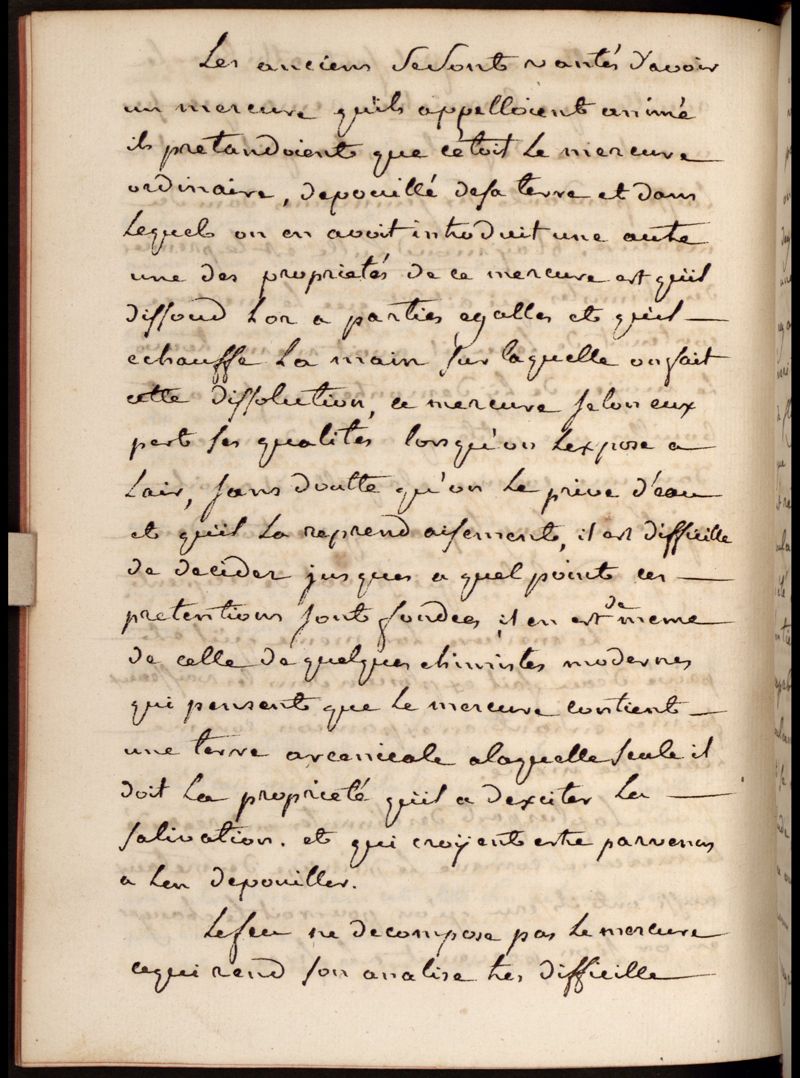 Les anciens se sont vantés d'avoir
un mercure qu'ils appelloient animé
ils pretandoient que c'étoit le mercure
ordinaire, depouillé de sa terre et dans
lequels on en avoit introduit une autre
une des proprietés de ce mercure est qu'il
dissoud l'or a parties egalles et qu'il
echauffe la main sur laquelle on fait
cette dissolution, ce mercure selon eux
pert ses qualités lorsqu'on l'expose a
l'air, sans doutte qu'on le prive d'eau
et qu'il la reprend aisement, il est difficille
de decider jusques a quel point ces
pretentions sont fondees, il en est de meme
de celle de quelques chimistes modernes
qui pensent que le mercure contient
une terre arcenicale a laquelle seule il
doit la proprieté qu'il a d'exciter la
salivation. et qui croyent estre parvenus
a l'en depouiller.
Le feu ne decompose pas le mercure
ce qui rend son analise tres difficille